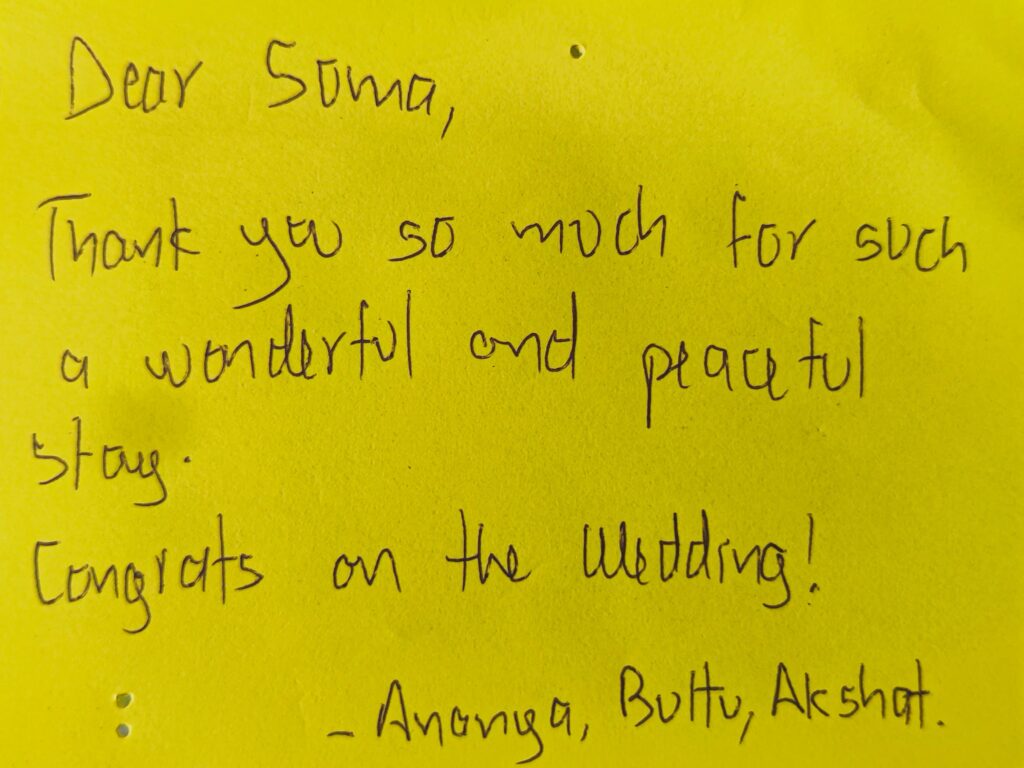 Dear Soma,
Thank you so much for such
a wonderful and peaceful
stay.
Congrats on the Wedding!
- Ananya, Buttu, Akshat.